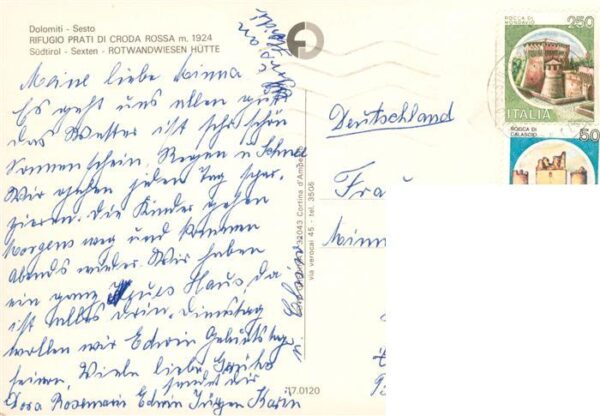 Dolomiti - Sesto
RIFUGIO PRATI DI CRODA ROSSA m. 1924
Südtirol - Sexten - ROTWANDWIESEN HÜTTE
Meine liebe Minna
Es geht uns allen gut
das Wetter ist sehr schön
Sonnenschein, Regen u. Schnee
Wir gehen jeden Tag spa-
zieren. Die Kinder gehen
Morgens weg und kommen
Abends wieder. Wir haben
ein ganz Haus, da
ist alles drin. Dienstag
wollen wir Edwin Geburtstag
feiern. Viele liebe Grüße
sendet dir
Rosemarie Edwin Jürgen Karin
32043 Cortina d'Ampe
via verocai 45 - tel. 3506
17.0120
Deutschland
Frau
Minn
ROCCA DI
250
ITALIA
ROCCA DI
CALASCIO
50